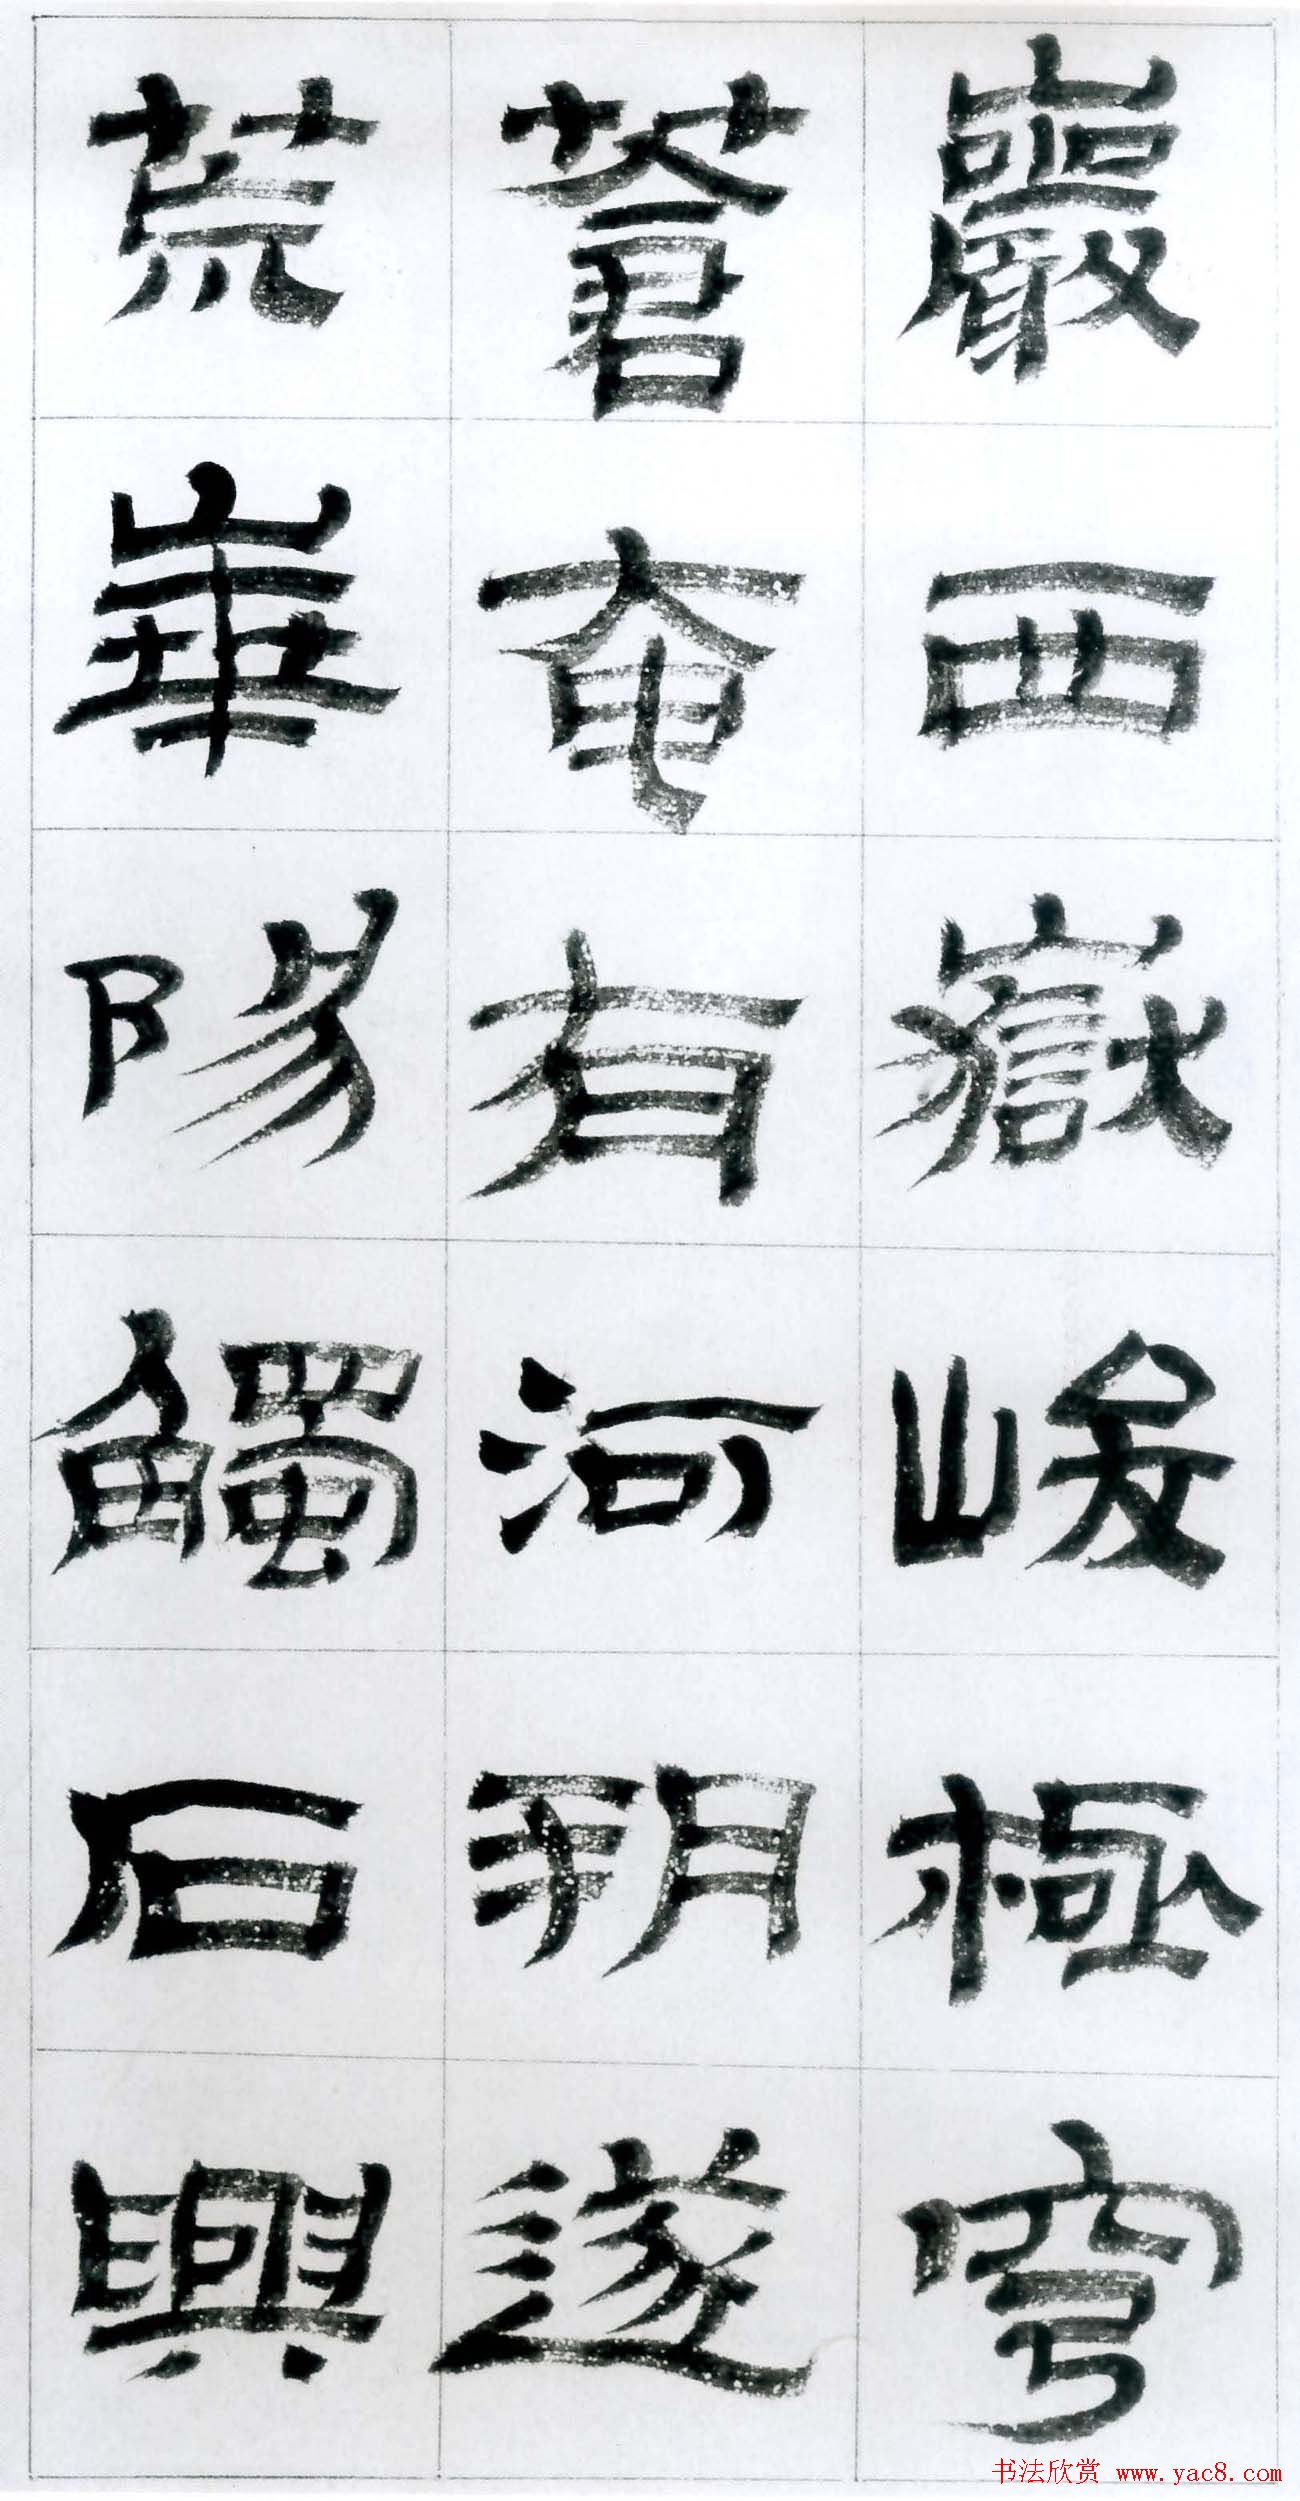 巖西嶽峻極穹
蒼奄有河朔遂
荒崋陽觸石興
书法欣赏 www.yac8.com